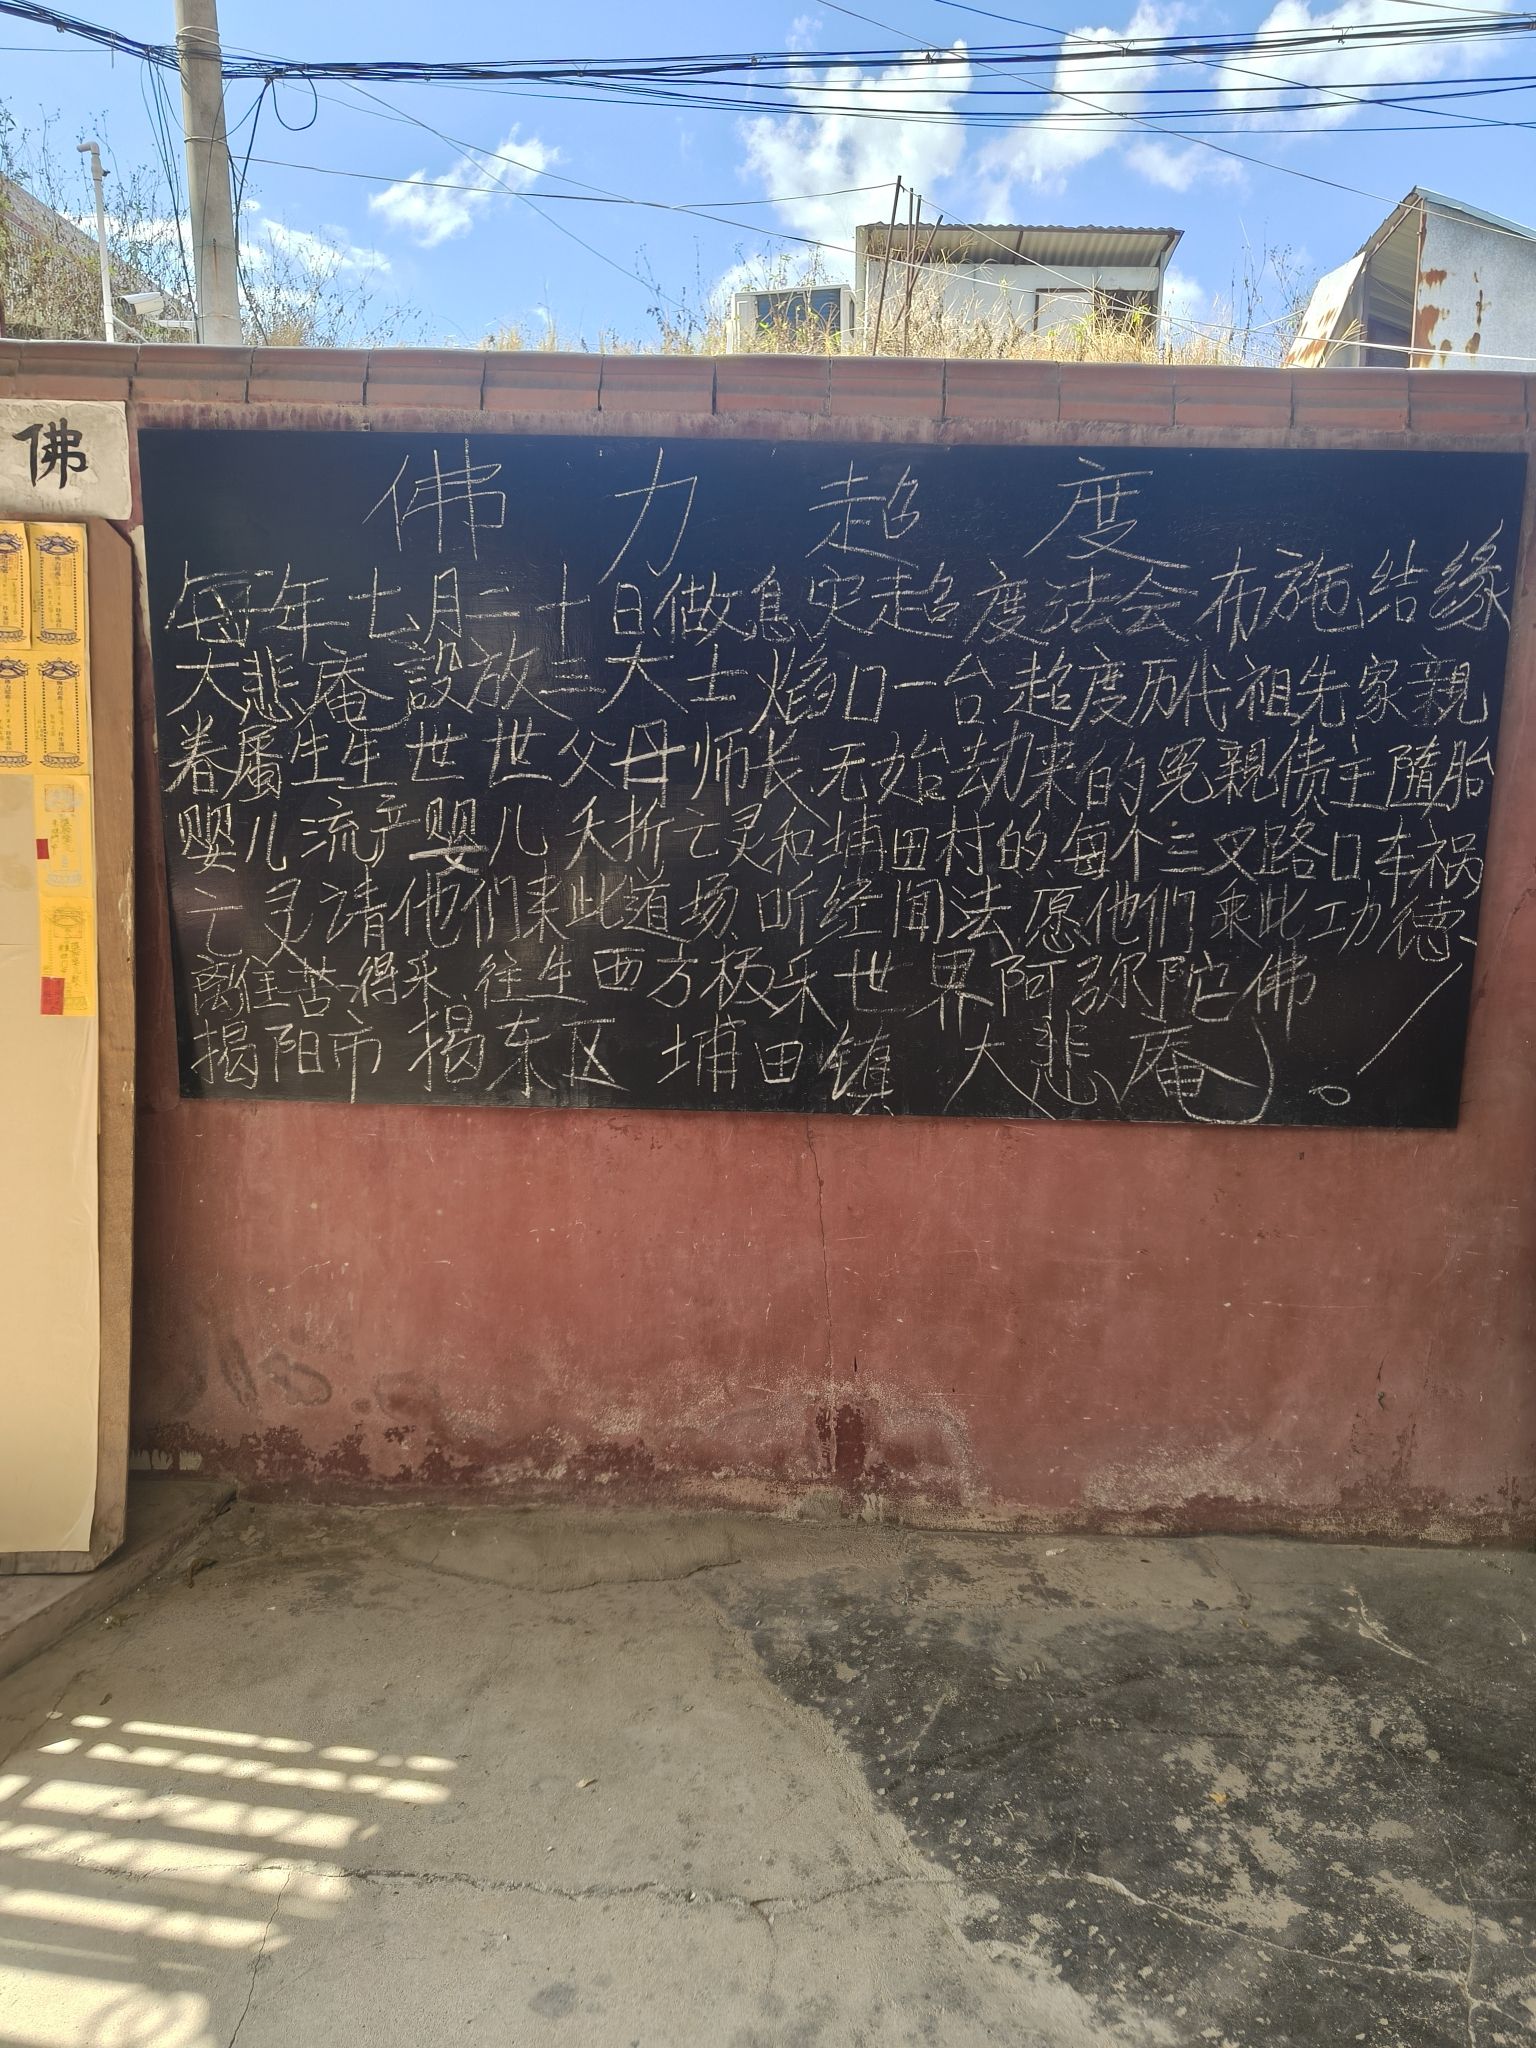 佛
佛力超度
每年七月二十日做息灾超度法会布施结缘
大悲庵設放三大士焰口一台超度历代祖先家親
眷属生生世世父母师长无始劫来的冤親债主隋胎
婴儿流产婴儿夭折亡灵和埔田村的每个三叉路口车祸
亡灵请他们来此道场听经闻法愿他們乘此功德
離苦得乐往生西方极乐世界阿弥陀佛
揭阳市揭东区埔田镇大悲庵